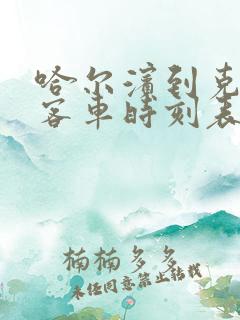 哈尔滨到克
客车时刻表
楠楠多多
未经同意禁止转载